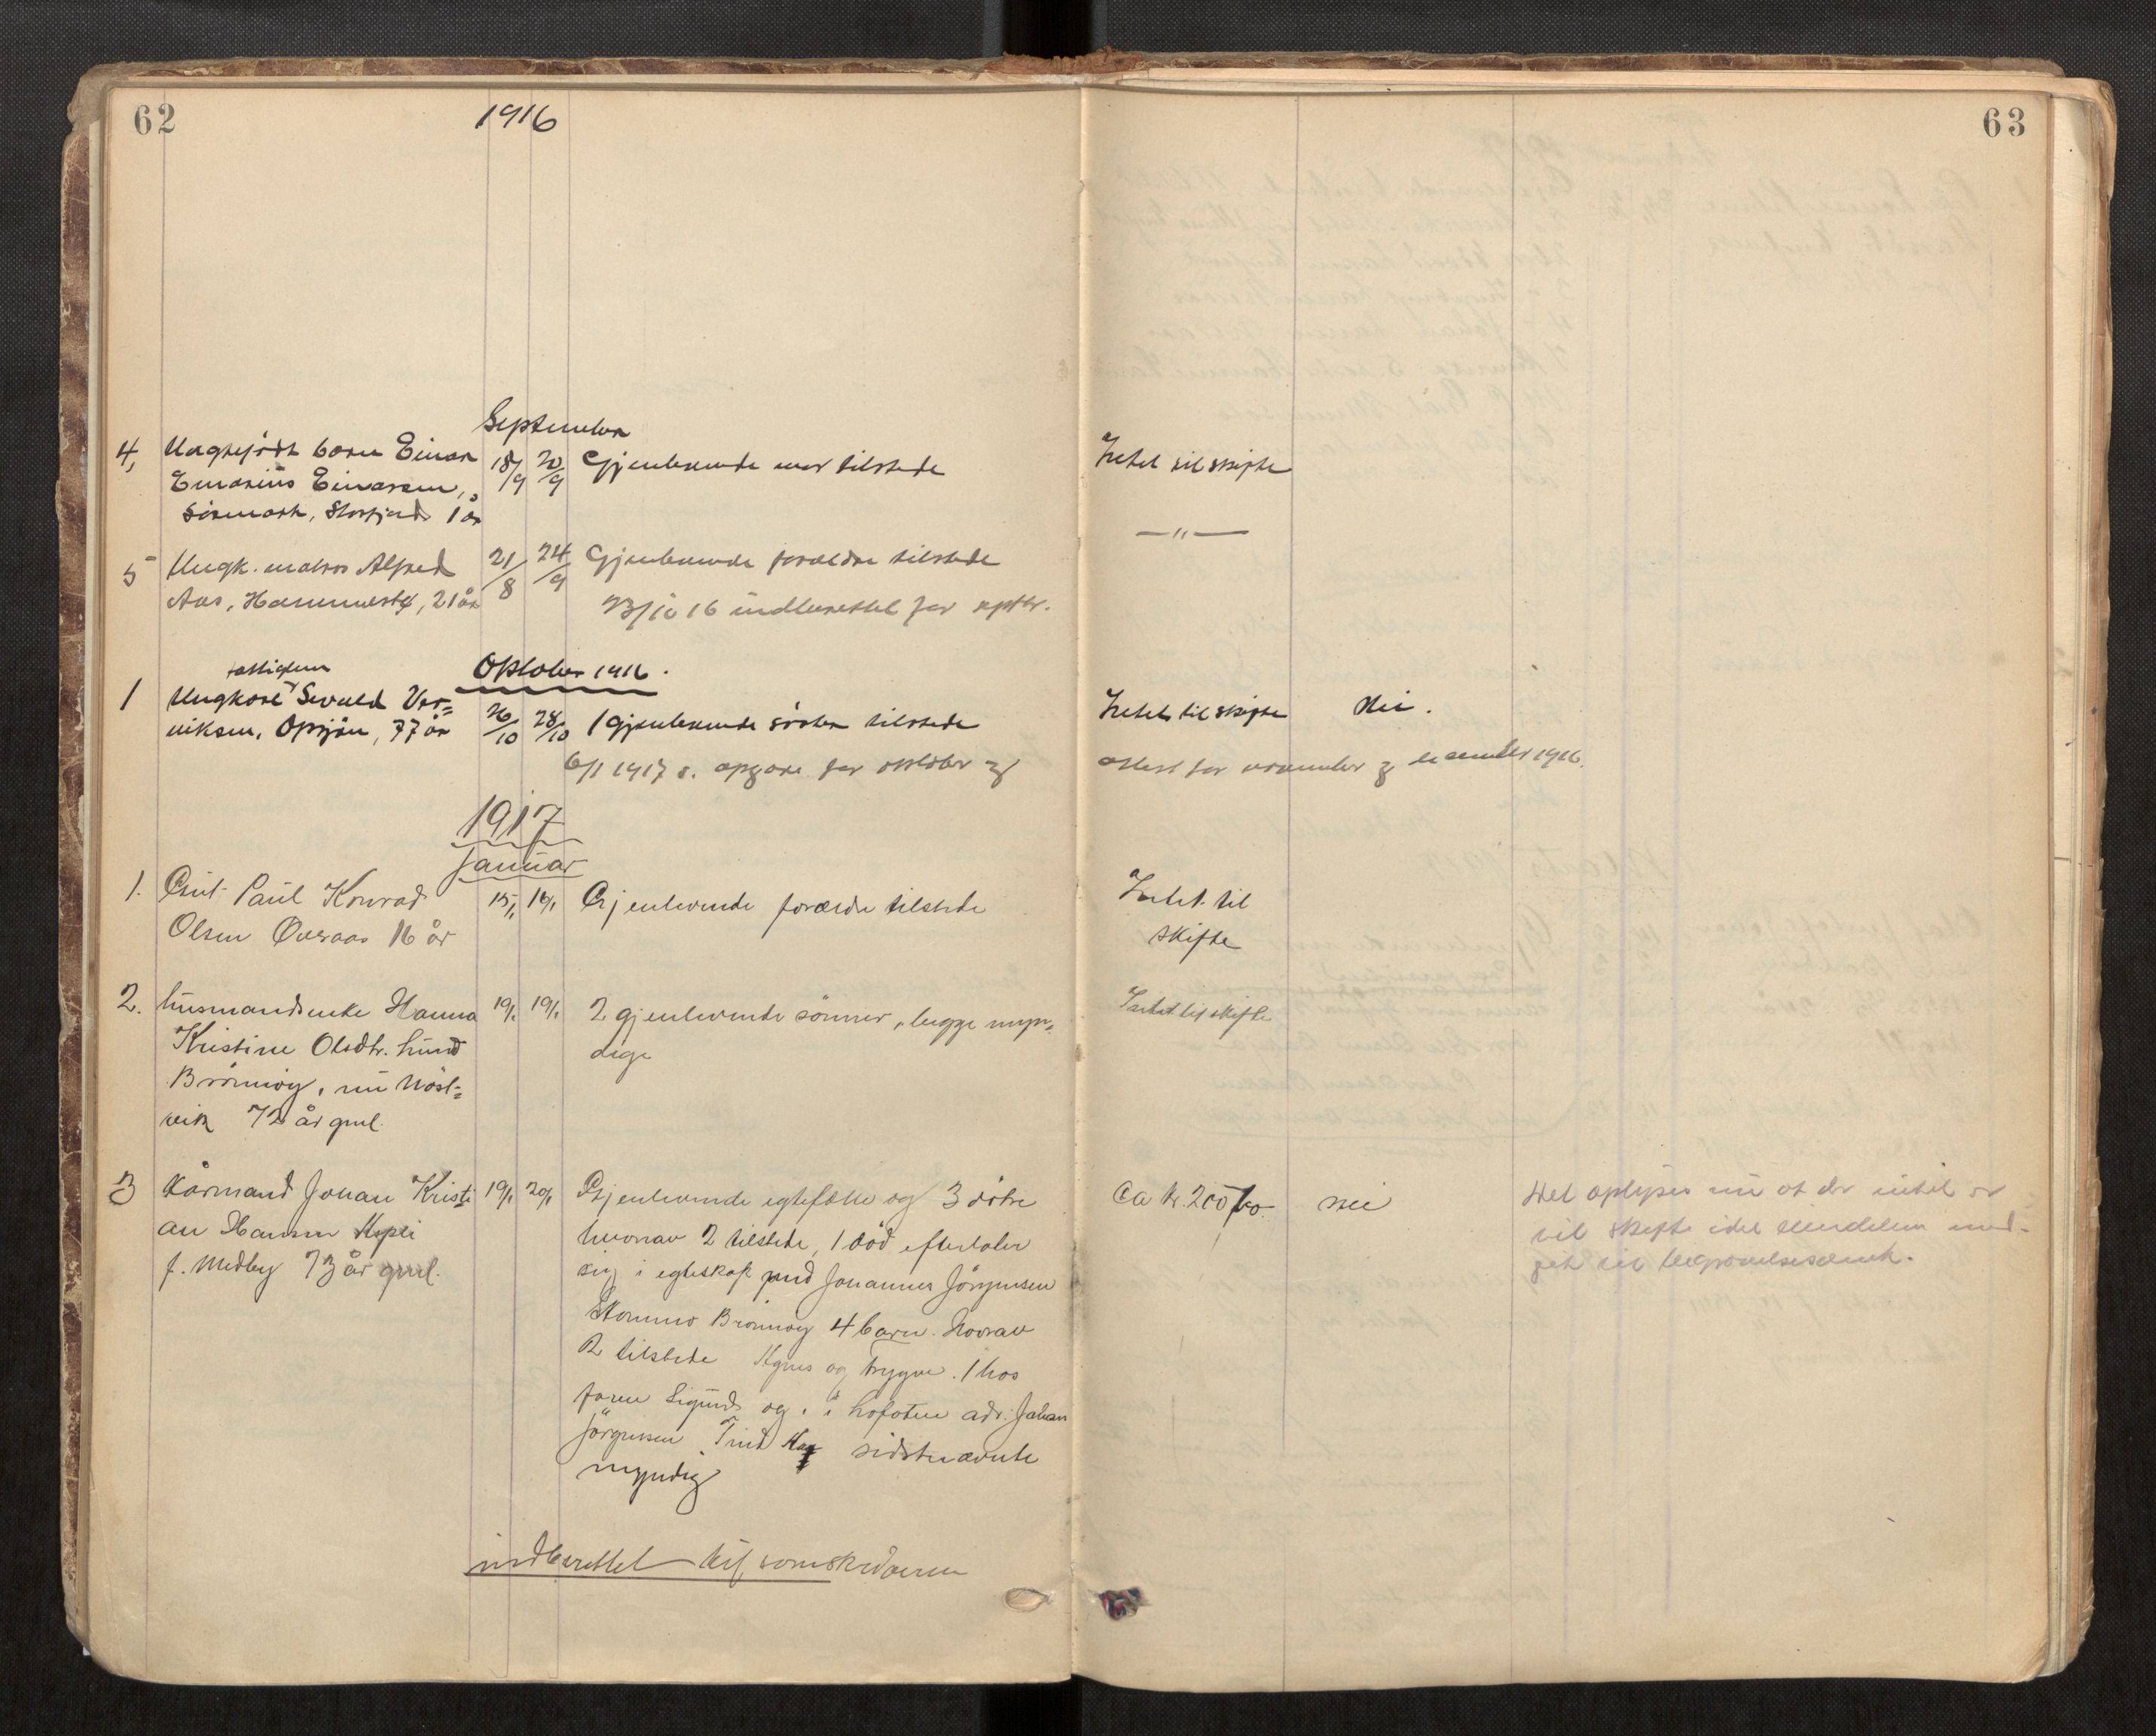 62
1916
September
4, Uegtefødt barn Einar 18/9 20/9 Gjenlevende mor tilstede
Einarsen,
Storfjord 1 år
5 Ungk. matros Alfred 21/8 24/9 Gjenlevende forældre tilstede
Aas, Hammerst, 21 år
23/10 16 indberettet for septbr.
Oktober 1916.
fattiglem
1 Ungkarl Sevald
Opsjøn, 77 år 26/10 28/10 1 gjenlevende søster tilstede
6/1 1917 s. opgave for oktober og
1917
Januar
1. Gut Paul Konrad 15/1 16/1 Gjenlevende forældre tilstede
Olsen Øveraas 16 år
2. Husmandsenke Hanna 19/1 19/1 2 gjenlevende sønner, begge myn=
Kristine Olsdtr. Lund dige
Brønnøy, nu
vik 72 år gml.
3 Kårmand Johan Kristi 19/1 20/1 Gjenlevende egtefælle og 3 døtre
an Hansen hvorav 2 tilstede, 1 död efterlater
f. Medby 73 år gml. sig i egteskap med Johannes Jörgensen
Brönnöy 4 barn. Hvorav
2 tilstede Agnes og Trygve. 1 hos
faren Sigurd og 1 i Lofoten adr. Johan
Jörgensen sidstnævnte
myndig
indberettet
63
Intet til skifte
—"—
Intet til skifte Nei.
attest for november og december 1916.
Intet til
skifte
Intet til skifte
Ca kr. 200 nei Det oplyses nu at der intet er
til skifte idet eiendelen med-
gik til begravelsen.